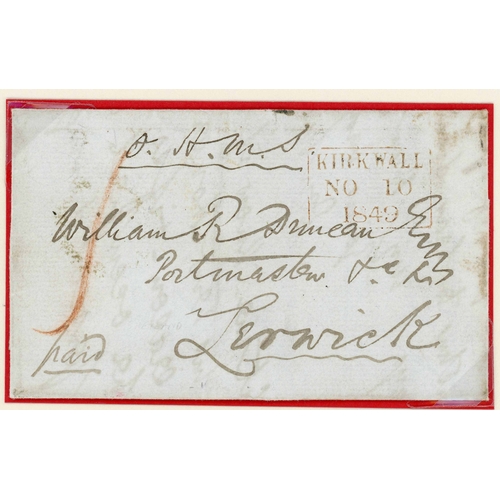 O. H. M. S
KIRKWALL
NO 10
1849
William R Duncan Esqr
Postmaster &c &c
Lerwick
paid